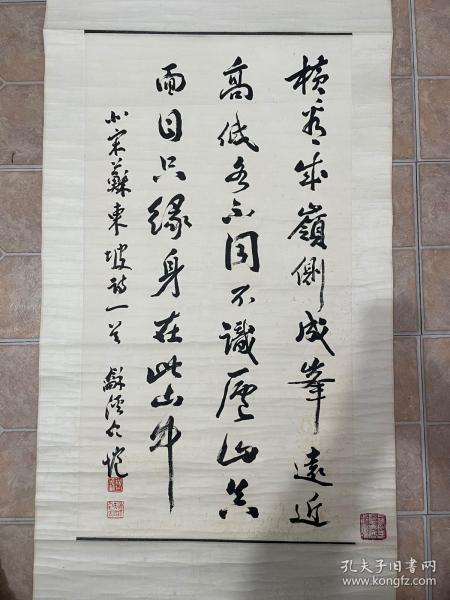 横看成嶺側成峯遠近
高低各不同不識廬山真
面目只緣身在此山中
北宋蘇東坡詩一首
孔夫子旧书网
www.kongfz.com